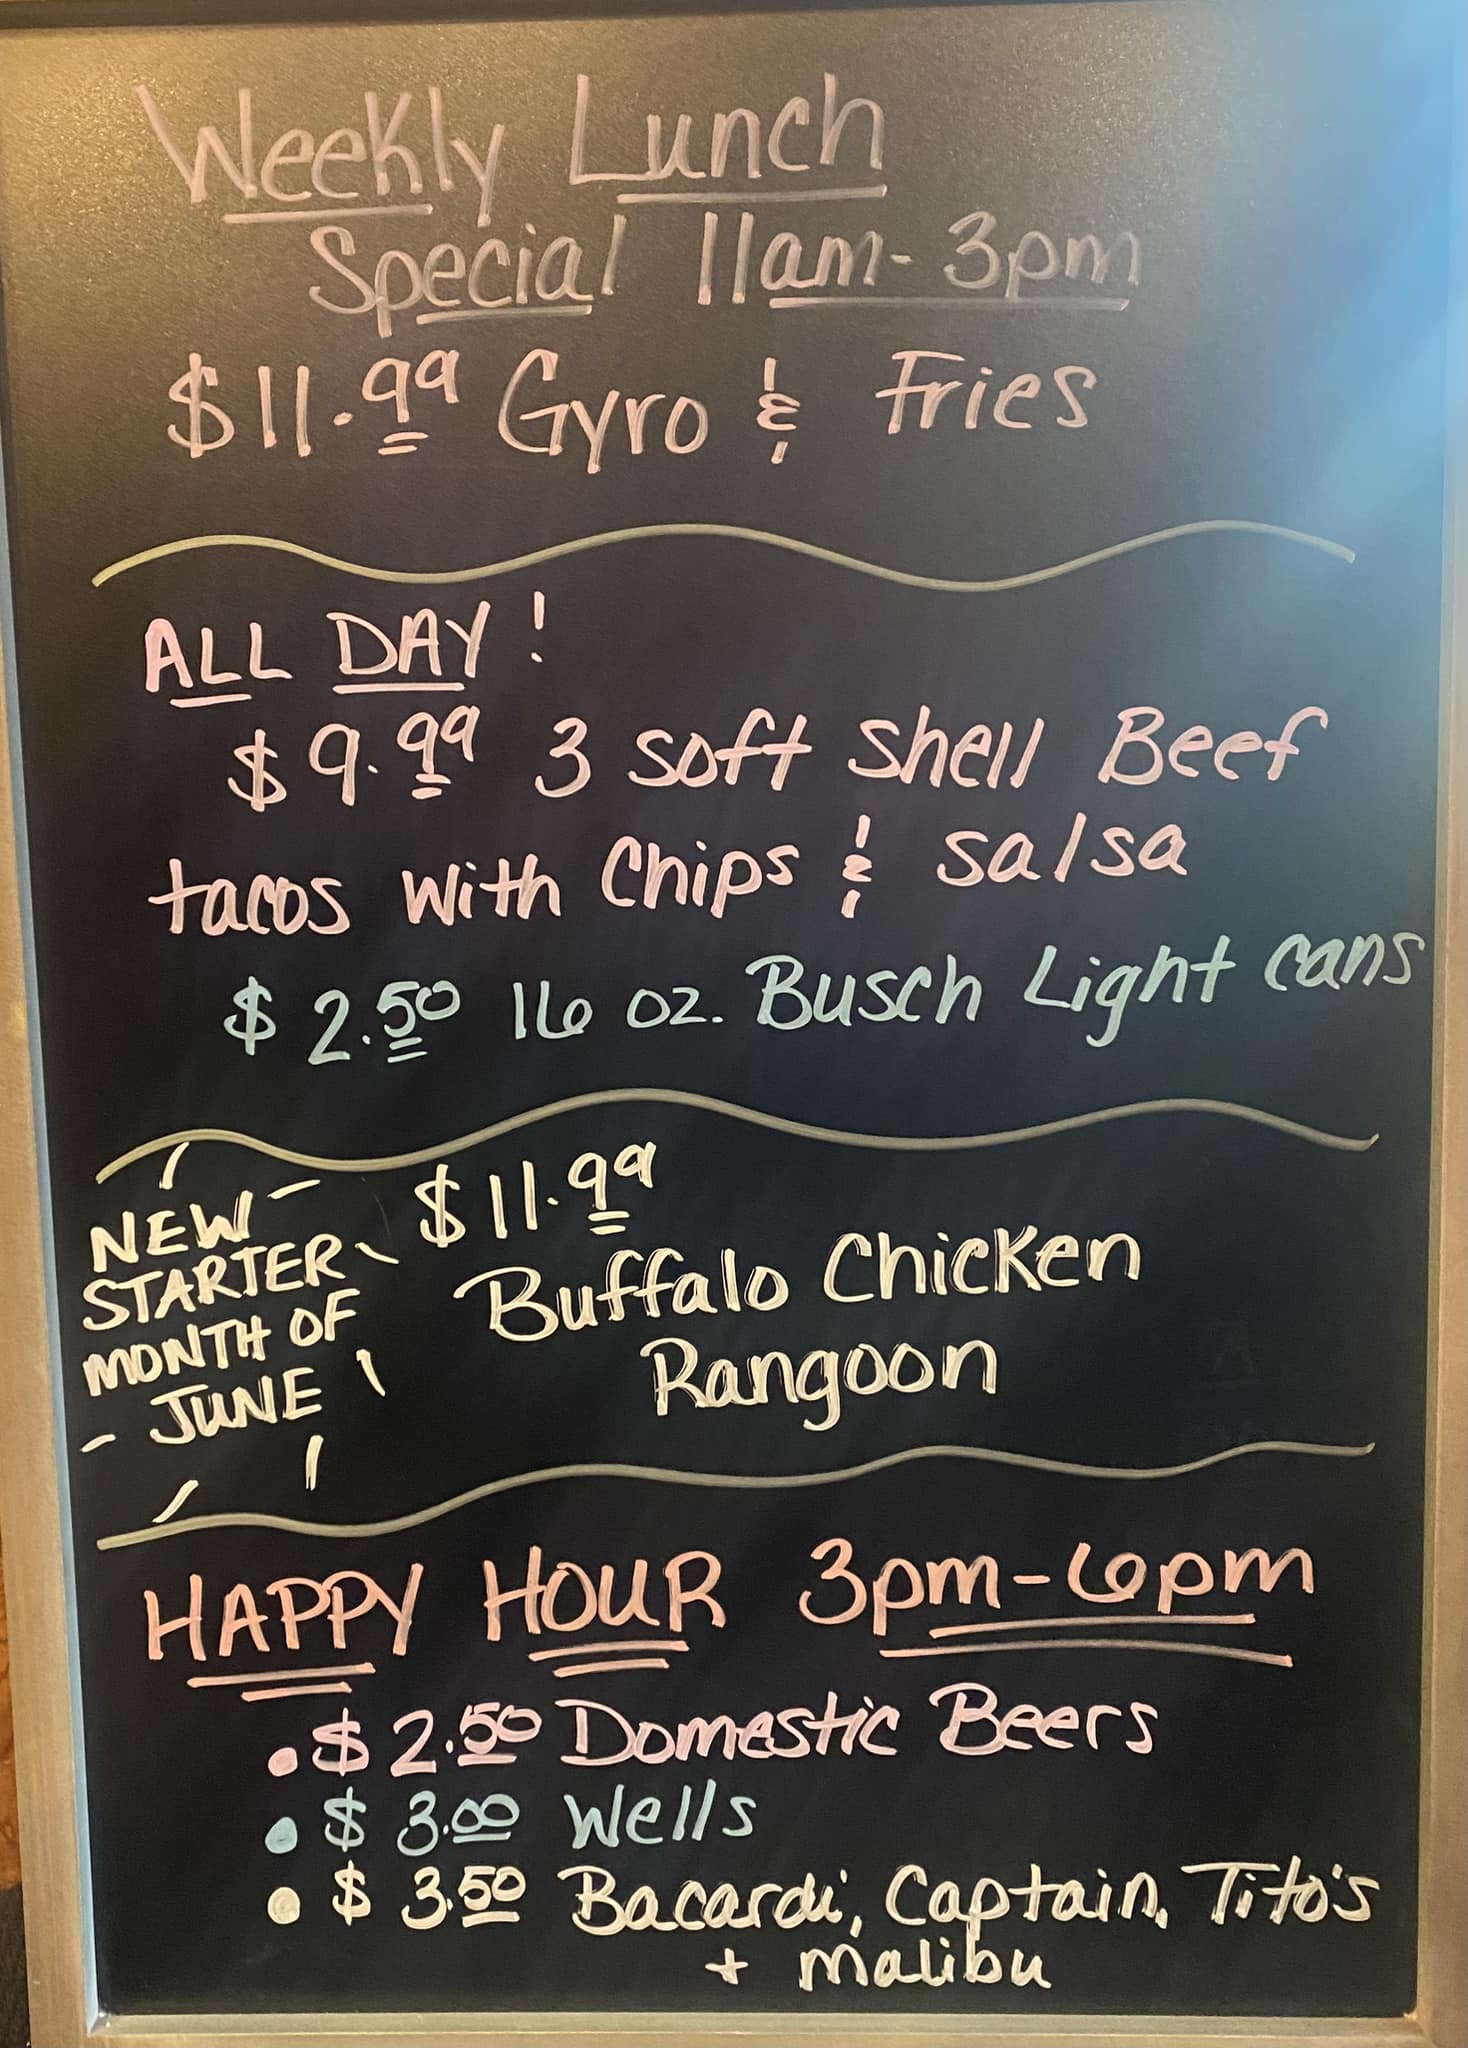 Weekly Lunch
Special 11am-3pm
$11.99 Gyro & Fries
ALL DAY!
$9.99 3 soft shell Beef
tacos with Chips & salsa
$2.50 16 oz. Busch Light cans
NEW
STARTER
MONTH OF
- JUNE
$11.99
Buffalo Chicken
Rangoon
HAPPY HOUR 3pm-6pm
• $2.50 Domestic Beers
• $3.00 Wells
• $3.50 Bacardi, Captain, Tito's
+ Malibu